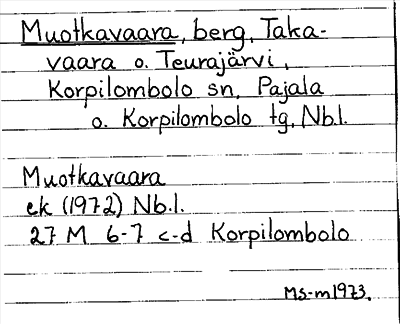 Muotkavaara, berg, Taka-
vaara o. Teurajärvi,
Korpilombolo sn, Pajala
o. Korpilombolo tg, Nb.l.
Muotkavaara
ek (1972) Nb.l.
27 M 6-7 c-d Korpilombolo
Ms-m 1973.